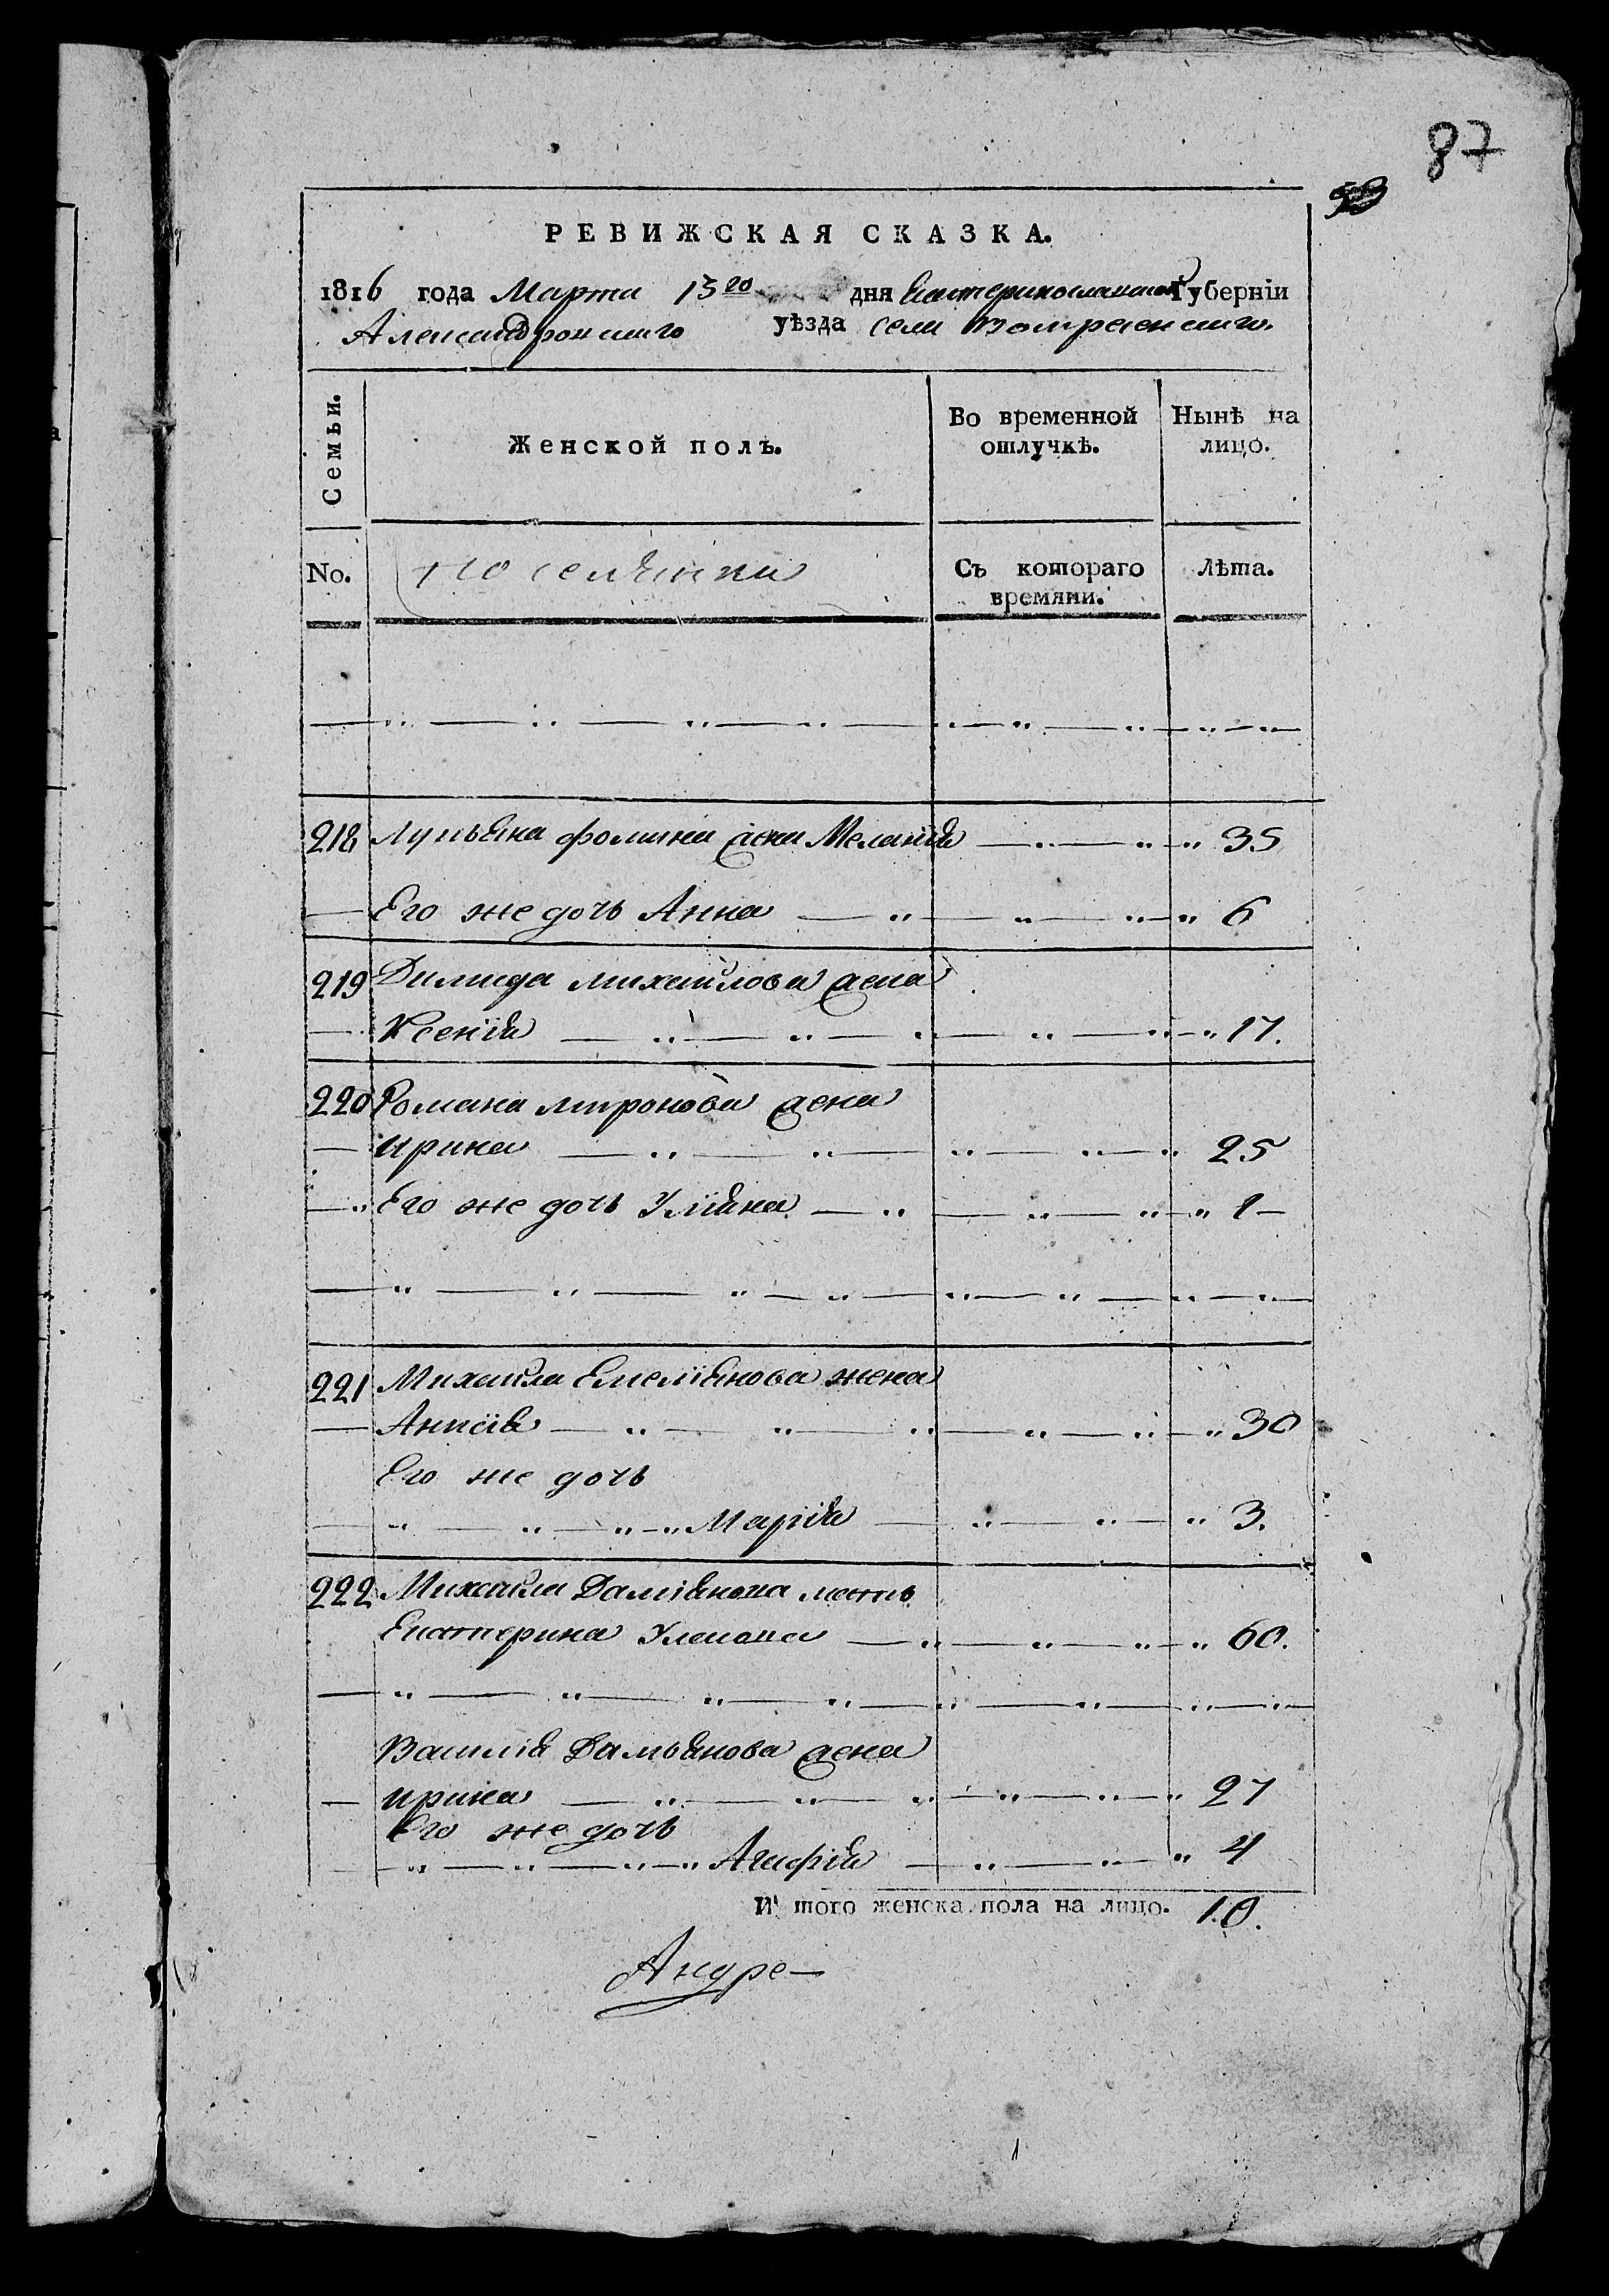 87
РЕВИЖСКАЯ СКАЗКА.
1816 года Марта 15го дня Екатеринославской Губерніи
Александровскаго уѣзда села Воскресенскаго.
Семьи. Женской полъ. Во временной отлучкѣ. Нынѣ на лицо.
No. Поселянки Съ котораго времяни. Лѣта.
218 Лукьяна Фомина жена Меланія 35
Его же дочь Анна 6
219 Михайлова жена
Ксенія 17.
220 Романа Миронова жена
Ирина 25
Его же дочь Уліяна 1
221 Михайла Емеліянова жена
Анисія 30
Его же дочь
Марія 3.
222 Михайла Даміянова мать
Екатерина 60.
Василія Дамьянова жена
Ирина 27
Его же дочь
Агафія 4
И того женска пола на лицо. 10.
Андре